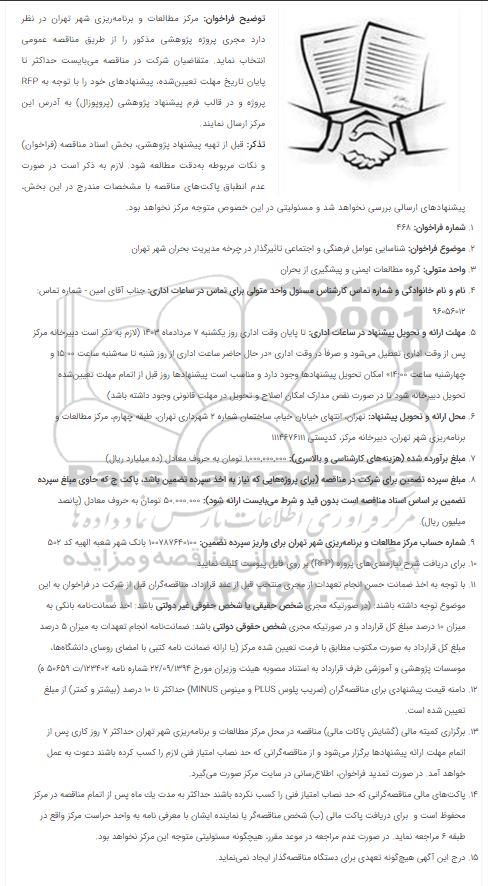 توضیح فراخوان: مرکز مطالعات و برنامه‌ریزی شهر تهران در نظر
دارد مجری پروژه پژوهشی مذکور را از طریق مناقصه عمومی
انتخاب نماید. متقاضیان شرکت در مناقصه می‌بایست حداکثر تا
پایان تاریخ مهلت تعیین‌شده، پیشنهادهای خود را با توجه به RFP
پروژه و در قالب فرم پیشنهاد پژوهشی (پروپوزال) به آدرس این
مرکز ارسال نمایند.
تذکر: قبل از تهیه پیشنهاد پژوهشی، بخش اسناد مناقصه (فراخوان)
و نکات مربوطه به‌دقت مطالعه شود. لازم به ذکر است در صورت
عدم انطباق پاکت‌های مناقصه با مشخصات مندرج در این بخش،
پیشنهادهای ارسالی بررسی نخواهد شد و مسئولیتی در این خصوص متوجه مرکز نخواهد بود.
۱. شماره فراخوان: ۴۶۸
۲. موضوع فراخوان: شناسایی عوامل فرهنگی و اجتماعی تاثیرگذار در چرخه مدیریت بحران شهر تهران
۳. واحد متولی: گروه مطالعات ایمنی و پیشگیری از بحران
۴. نام و نام خانوادگی و شماره تماس کارشناس مسئول واحد متولی برای تماس در ساعات اداری: جناب آقای امین - شماره تماس:
۹۶۰۵۶۰۱۲
۵. مهلت ارائه و تحویل پیشنهاد در ساعات اداری: تا پایان وقت اداری روز یکشنبه ۷ مردادماه ۱۴۰۳ (لازم به ذکر است دبیرخانه مرکز
پس از وقت اداری تعطیل می‌شود و صرفاً در وقت اداری «در حال حاضر ساعت اداری از روز شنبه تا سه‌شنبه ساعت ۱۵:۰۰ و
چهارشنبه ساعت ۱۴:۰۰» امکان تحویل پیشنهادها وجود دارد و مناسب است پیشنهادها روز قبل از اتمام مهلت تعیین‌شده
تحویل دبیرخانه شود تا در صورت نقص مدارک امکان اصلاح و تحویل در مهلت قانونی وجود داشته باشد)
۶. محل ارائه و تحویل پیشنهاد: تهران، انتهای خیابان خیام، ساختمان شماره ۲ شهرداری تهران، طبقه چهارم، مرکز مطالعات و
برنامه‌ریزی شهر تهران، دبیرخانه مرکز، کدپستی ۱۱۱۴۶۷۶۱۱۱
۷. مبلغ برآورده شده (هزینه‌های کارشناسی و بالاسری): ۱,۰۰۰,۰۰۰,۰۰۰ تومان به حروف معادل (ده میلیارد ریال)
۸. مبلغ سپرده تضمین برای شرکت در مناقصه (برای پروژه‌هایی که نیاز به اخذ سپرده تضمین باشد، پاکت ج که حاوی مبلغ سپرده
تضمین بر اساس اسناد مناقصه است بدون قید و شرط می‌بایست ارائه شود): ۵۰.۰۰۰.۰۰۰ تومان به حروف معادل (پانصد
میلیون ریال)
۹. شماره حساب مرکز مطالعات و برنامه‌ریزی شهر تهران برای واریز سپرده تضمین: ۱۰۰۷۸۷۶۴۰۱۰۰ بانک شهر شعبه الهیه کد ۵۰۲
۱۰. برای دریافت شرح نیازمندی‌های پروژه (RFP) بر روی فایل پیوست کلیک نمایید
۱۱. با توجه به اخذ ضمانت حسن انجام تعهدات از مجری منتخب قبل از عقد قرارداد، مناقصه‌گران قبل از شرکت در فراخوان به این
موضوع توجه داشته باشند: (در صورتیکه مجری شخص حقیقی یا شخص حقوقی غیر دولتی باشد: اخذ ضمانت‌نامه بانکی به
میزان ۱۰ درصد مبلغ کل قرارداد و در صورتیکه مجری شخص حقوقی دولتی باشد: ضمانت‌نامه انجام تعهدات به میزان ۵ درصد
مبلغ کل قرارداد به صورت مکتوب مطابق با فرمت تعیین شده مرکز (یا ارائه ضمانت نامه کتبی با امضای روسای دانشگاه‌ها،
موسسات پژوهشی و آموزشی طرف قرارداد به استناد مصوبه هیئت وزیران مورخ ۲۲/۰۹/۱۳۹۴ شماره نامه ۱۲۳۴۰۲/ت ۵۰۶۵۹ ه)
۱۲. دامنه قیمت پیشنهادی برای مناقصه‌گران (ضریب پلوس PLUS و مینوس MINUS) حداکثر تا ۱۰ درصد (بیشتر و کمتر) از مبلغ
تعیین شده است.
۱۳. برگزاری کمیته مالی (گشایش پاکات مالی) مناقصه در محل مرکز مطالعات و برنامه‌ریزی شهر تهران حداکثر ۷ روز کاری پس از
اتمام مهلت ارائه پیشنهادها برگزار می‌شود و از مناقصه‌گرانی که حد نصاب امتیاز فنی لازم را کسب کرده باشند دعوت به عمل
خواهد آمد. در صورت تمدید فراخوان، اطلاع‌رسانی در سایت مرکز صورت می‌گیرد.
۱۴. پاکت‌های مالی مناقصه‌گرانی که حد نصاب امتیاز فنی را کسب نکرده باشند حداکثر به مدت یک ماه پس از اتمام مناقصه در مرکز
محفوظ است و برای دریافت پاکت مالی (ب) شخص مناقصه‌گر یا نماینده ایشان با معرفی نامه به واحد حراست مرکز واقع در
طبقه ۶ مراجعه نماید. در صورت عدم مراجعه در موعد مقرر، هیچگونه مسئولیتی متوجه این مرکز نخواهد بود.
۱۵. درج این آگهی هیچ‌گونه تعهدی برای دستگاه مناقصه‌گذار ایجاد نمی‌نماید.